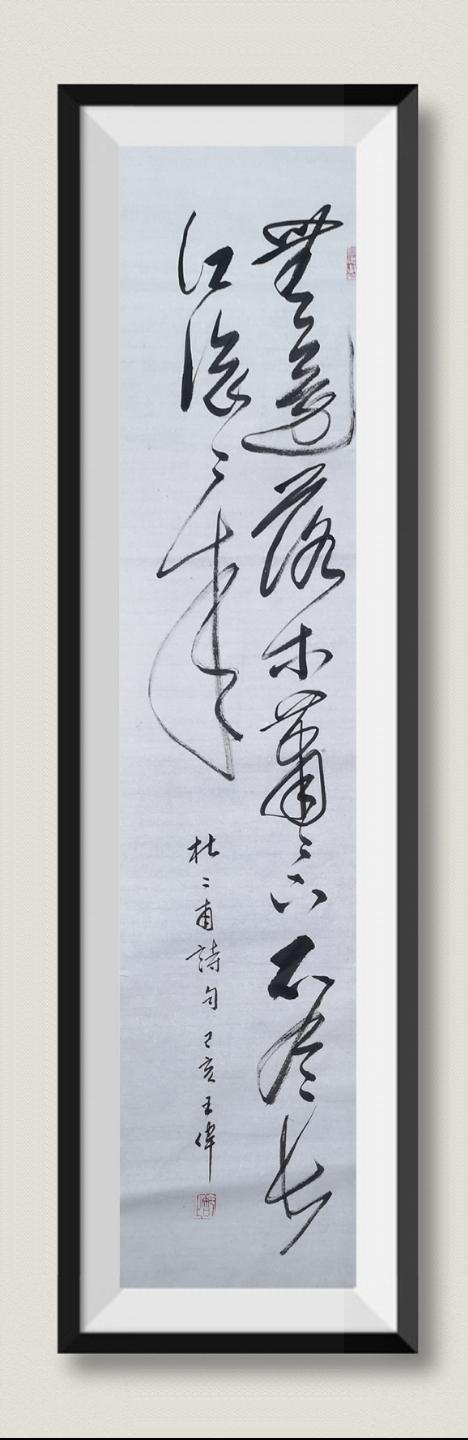 無邊落木蕭〻下不尽長
江滾〻來
杜甫詩句己亥王偉